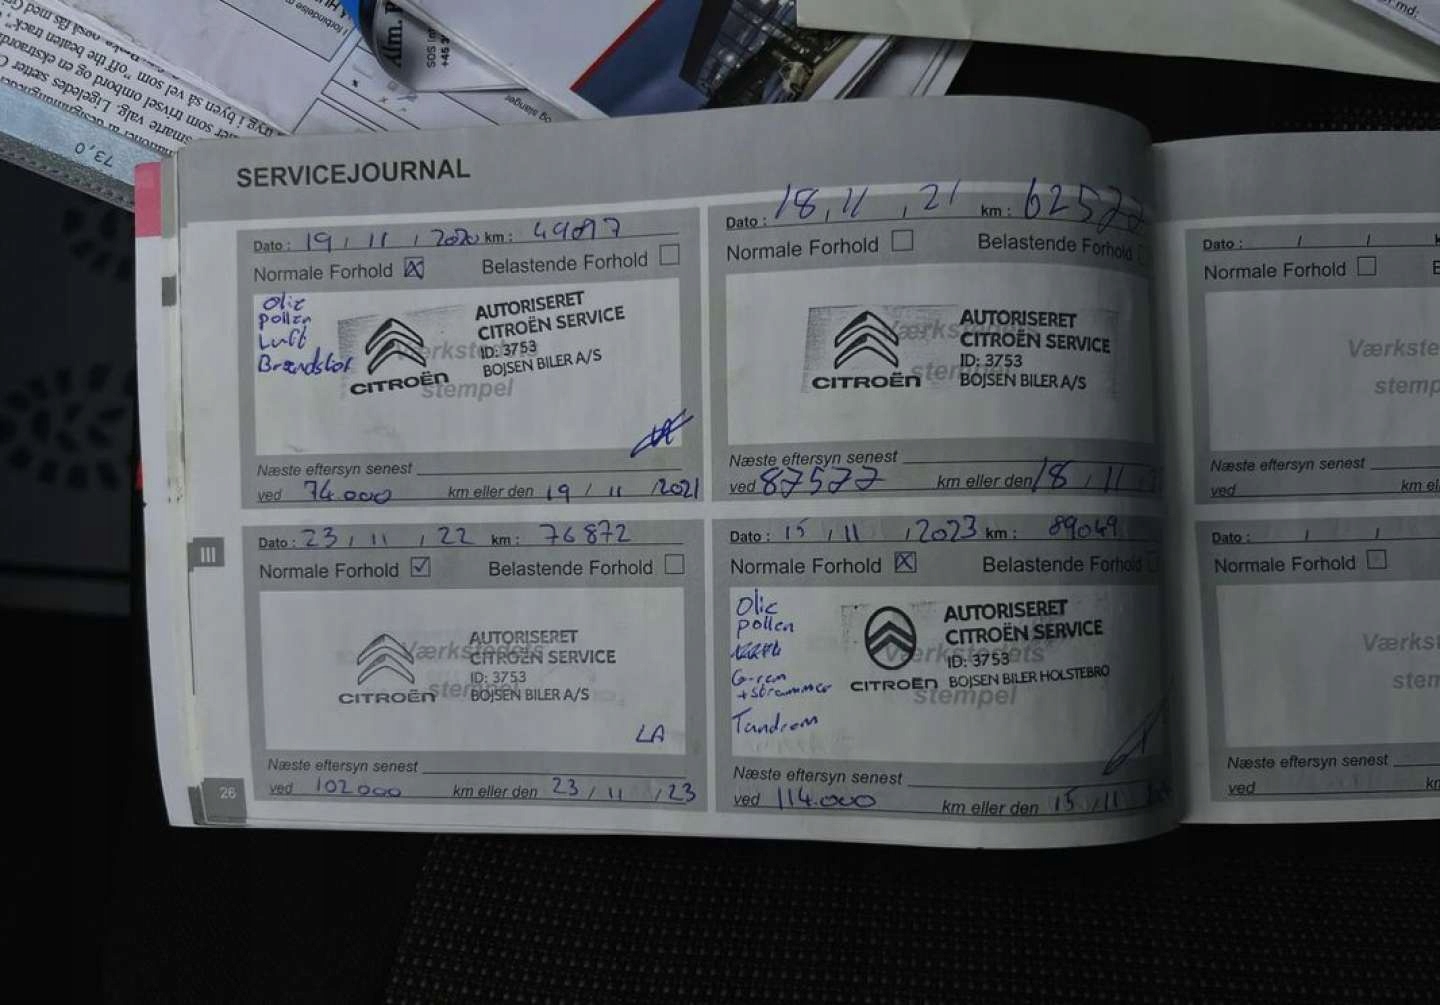 SERVICEJOURNAL
Dato : 19 / 11 / 2020 km : 49097
Normale Forhold Belastende Forhold
Olie
pollen
Luft
Brændstof
AUTORISERET
CITROËN SERVICE
ID: 3753
BOJSEN BILER A/S
CITROËN
Værkstedets
stempel
Næste eftersyn senest
ved 74.000 km eller den 19 / 11 / 2021
Dato : 18 , 11 , 21 km : 62577
Normale Forhold Belastende Forhold
AUTORISERET
CITROËN SERVICE
ID: 3753
BOJSEN BILER A/S
CITROËN
Værkstedets
stempel
Næste eftersyn senest
ved 87577 km eller den 18 / 11
Dato : 23 / 11 / 22 km : 76872
Normale Forhold Belastende Forhold
AUTORISERET
CITROËN SERVICE
ID: 3753
BOJSEN BILER A/S
CITROËN
Værkstedets
stempel
LA
Næste eftersyn senest
ved 102000 km eller den 23 / 11 / 23
Dato : 15 / 11 / 2023 km : 89049
Normale Forhold Belastende Forhold
Olie
pollen
G-rem
+ strammer
Tandrem
AUTORISERET
CITROËN SERVICE
ID: 3753
BOJSEN BILER HOLSTEBRO
CITROËN
Værkstedets
stempel
Næste eftersyn senest
ved 114.000 km eller den 15 / 11
III
26
Dato : / /
Normale Forhold
Værkste
stemp
Næste eftersyn senest
ved
Dato : / /
Normale Forhold
Værkst
stem
Næste eftersyn senest
ved
73,0
Alm.
SOS
+45
og slanger